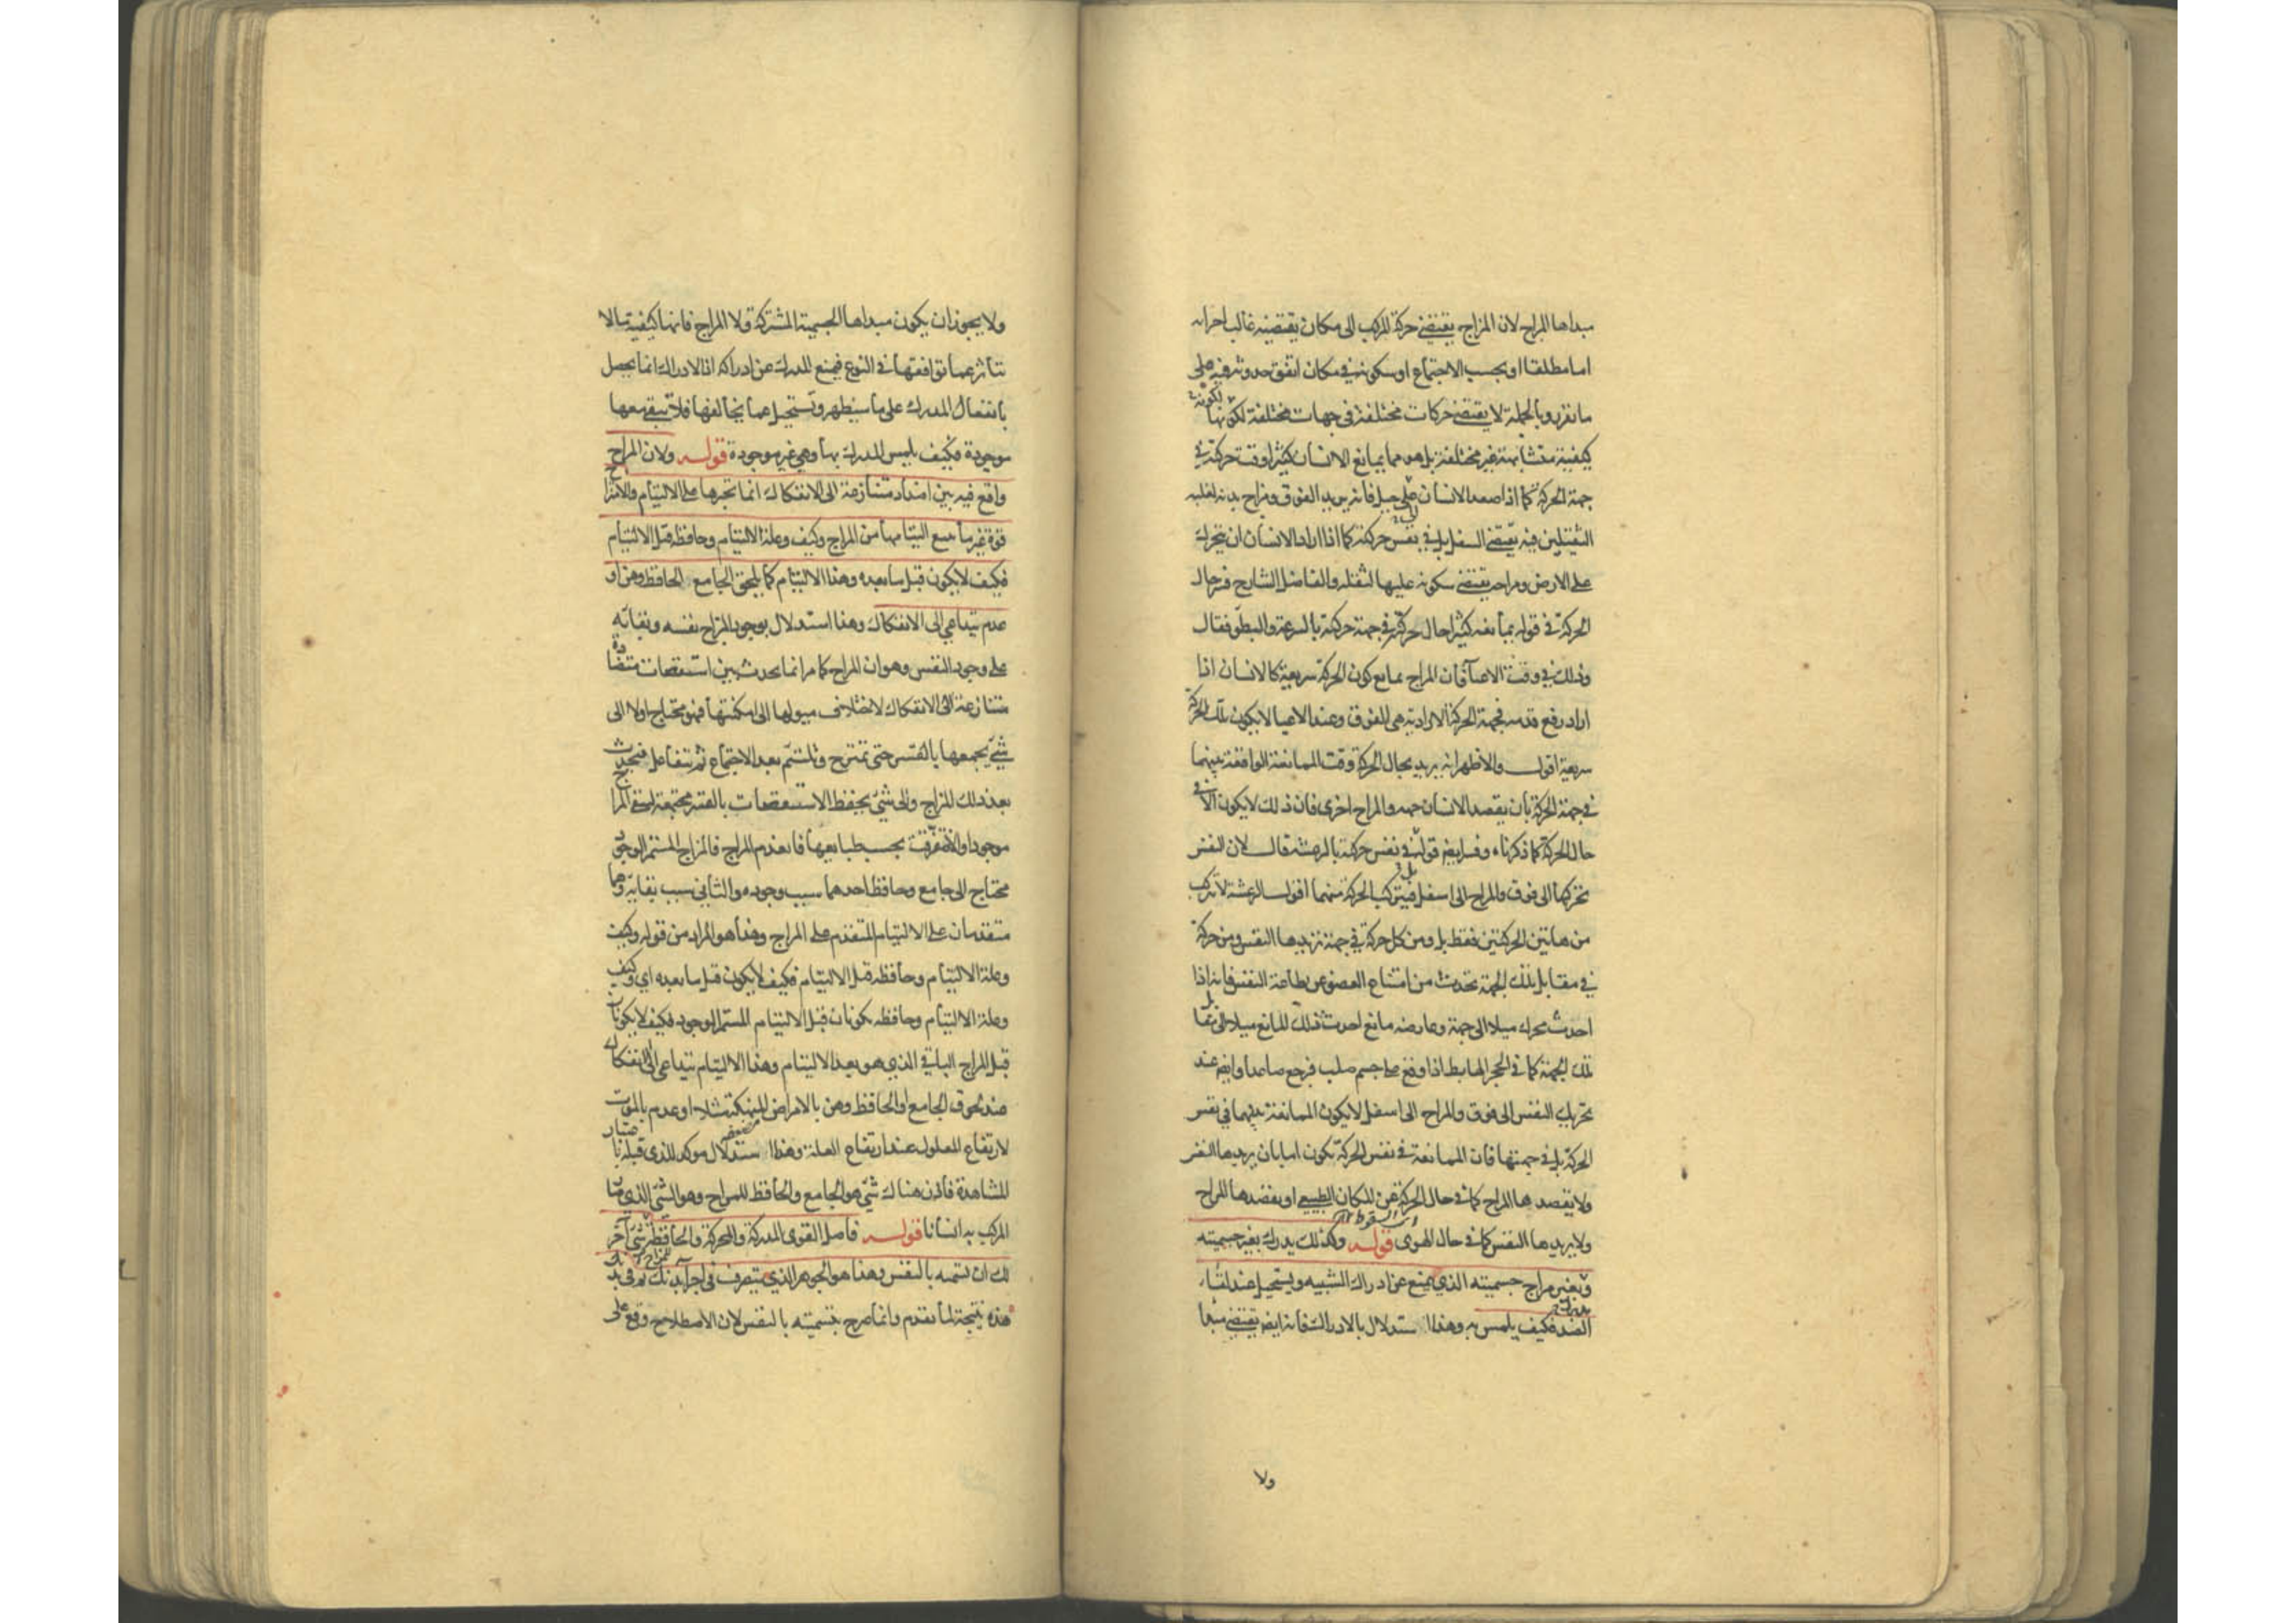 مبداها المزاج لان المزاج يقتضى حركة المركب الى مكان يقتضيه غالب اجزائه
اما مطلقا او بحسب الاجتماع او سكونه فى مكان اتفق حدوثه فيه على
ما تقرر وبالجملة لا يقتضى حركات مختلفة فى جهات مختلفة لكونها لكونه
كيفية متشابهة غير مختلفة بل هو مما يمانع الانسان كثيرا وقت حركته فى
جهة الحركة كما اذا صعد الانسان على جبل فانه يريد الفوق ومزاج بدنه لغلبة
الثقيلين فيه يقتضى السفل بل فى نفس حركته كما اذا اراد الانسان ان يتحرك
على الارض ومزاجه يقتضى سكونه عليها لثقله والفاضل الشارح فسر حال
الحركة فى قوله يمانعه كثيرا حال حركته فى جهة حركته بالسرعة والبطؤ فقال
وذلك فى وقت الاعيآ فان المزاج يمانع كون الحركة سريعة كالانسان اذا
اراد رفع قدمه فجهة الحركة الارادية هى الفوق وعند الاعيا لا يكون تلك الحركة
سريعة اقول والاظهر انه يريد بحال الحركة وقت الممانعة الواقعة بينهما
فى جهة الحركة بان يقصد الانسان جهة والمزاج اخرى فان ذلك لا يكون الا فى
حال الحركة كما ذكرناه وفسر ايضا قوله فى نفس حركته بالرعشة قال لان النفس
تحركها الى فوق والمزاج الى اسفل فيتركب الحركة منهما اقول الرعشة لا تتركب
من هاتين الحركتين فقط بل ومن كل حركة فى جهة تريدها النفس ومن حركة
فى مقابل تلك الجهة تحدث من امتناع العضو عن طاعة النفس فانه اذا
احدث محرك ميلا الى جهة وعارضه مانع احدث ذلك المانع ميلا الى مقابل
تلك الجهة كما فى الحجر الهابط اذا وقع على جسم صلب فرجع صاعدا وايضا عند
تحريك النفس الى فوق والمزاج الى اسفل لا يكون الممانعة بينهما فى نفس
الحركة بل فى جهتها فان الممانعة فى نفس الحركة يكون اما بان يريدها النفس
ولا يقصدها المزاج كما فى حال الحركة عن المكان الطبيعى او يقصدها المزاج
ولا يريدها النفس كما فى حال الهوى قوله وكذلك يدرك بغير جسميته
وبغير مزاج جسميته الذى يمنع عن ادراك الشبيه ويستحيل عند لقاء
الضد فكيف يلمس به وهذا استدلال بالادراك فانه ايضا يقتضى مبدأ
ولا
ولا يجوز ان يكون مبداها الجسمية المشتركة ولا المزاج فانها كيفية ما لا
تتأثر عما توافقها فى النوع فيمنع المدرك عن ادراكه اذ الادراك انما يحصل
بانفعال المدرك على ما سيظهر وتستحيل عما يخالفها فلا تبقى معها
موجودة فكيف يلمس المدرك بها وهى غير موجودة قوله ولان المزاج
واقع فيه بين اضداد متنازعة الى الانفكاك انما تجبرها على الالتيام والامتزاج
قوة غير ما يتبع التيامها من المزاج وكيف وعلة الالتيام وحافظه قبل الالتيام
فكيف لا يكون قبل ما بعده وهذا الالتيام كما يلحق الجامع الحافظ وهن او
عدم يتداعى الى الانفكاك وهذا استدلال بوجود المزاج نفسه وبقائه
على وجود النفس وهو ان المزاج كما مر انما يحدث بين استقصات متضادة
متنازعة الى الانفكاك لاختلاف ميولها الى امكنتها فهو محتاج اولا الى
شئ يجمعها بالقسر حتى تمتزج وتلتئم بعد الاجتماع ثم تتفاعل فيحدث
بعد ذلك المزاج والى شئ يحفظ الاستقصات بالقسر مجتمعة ليبقى المزاج
موجودا والا تفرقت بحسب طبايعها فانعدم المزاج فالمزاج المستمر الوجود
محتاج الى جامع وحافظ احدهما سبب وجوده والثانى سبب بقايه وهما
متقدمان على الالتيام المتقدم على المزاج وهذا هو المراد من قوله وكيف
وعلة الالتيام وحافظه قبل الالتيام فكيف لا يكون قبل ما بعده اى وكيف
وعلة الالتيام وحافظه يكونان قبل الالتيام المستمر الوجود فكيف لا يكونان
قبل المزاج الباقى الذى هو بعد الالتيام وهذا الالتيام يتداعى الى الانفكاك
عند لحوق الجامع او الحافظ وهن بالامراض المنهكة مثلا او عدم بالموت
لارتفاع المعلول عند ارتفاع العلة وهذا استدلال موكد للذى قبله باعتبار
المشاهدة فاذن هناك شئ هو الجامع والحافظ للمزاج وهو الشئ الذى صار
المركب به انسانا قوله فاصل القوى المدركة والمحركة والحافظة للمزاج شئ آخر
لك ان تسميه بالنفس وهذا هو الجوهر الذى يتصرف فى اجزآ بدنك ثم فى بدنك
هذه نتيجة لما تقدم وانما صرح بتسميته بالنفس لان الاصطلاح وقع على